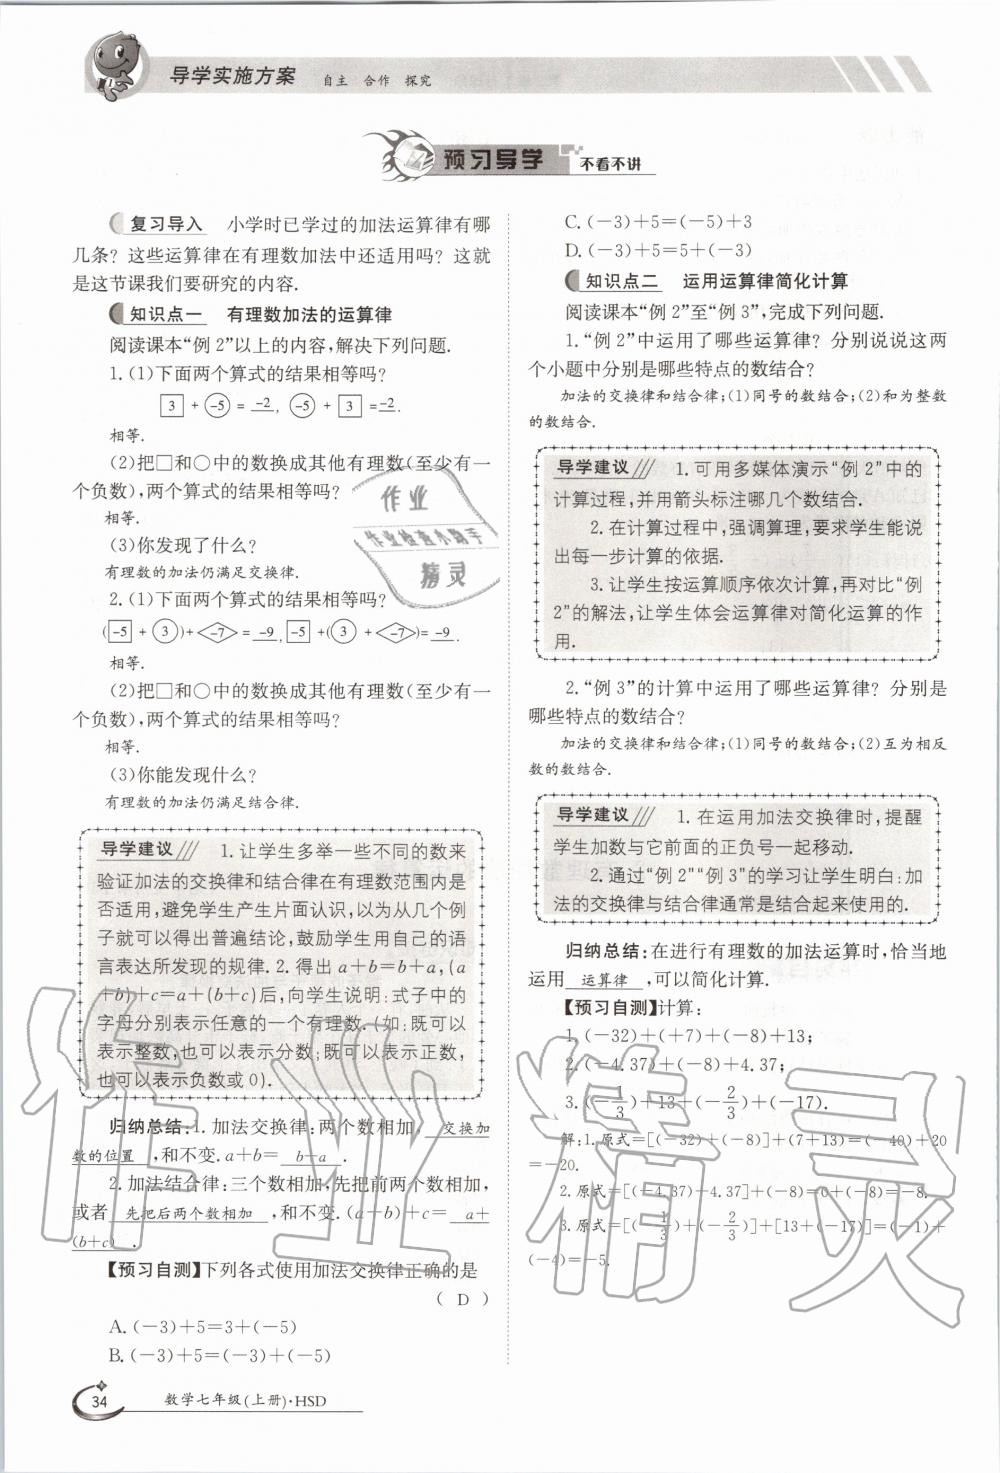 导学实施方案 自主 合作 探究
预习导学 不看不讲
复习导入 小学时已学过的加法运算律有哪
几条？这些运算律在有理数加法中还适用吗？这就
是这节课我们要研究的内容.
知识点一 有理数加法的运算律
阅读课本“例 2”以上的内容,解决下列问题.
1.(1)下面两个算式的结果相等吗？
3 + -5 = -2 , -5 + 3 = -2 .
相等.
(2)把□和○中的数换成其他有理数(至少有一
个负数),两个算式的结果相等吗？
相等.
(3)你发现了什么？
有理数的加法仍满足交换律.
2.(1)下面两个算式的结果相等吗？
( -5 + 3 )+ -7 = -9 , -5 +( 3 + -7 )= -9 .
相等.
(2)把□和○中的数换成其他有理数(至少有一
个负数),两个算式的结果相等吗？
相等.
(3)你能发现什么？
有理数的加法仍满足结合律.
导学建议 1.让学生多举一些不同的数来
验证加法的交换律和结合律在有理数范围内是
否适用,避免学生产生片面认识,以为从几个例
子就可以得出普遍结论,鼓励学生用自己的语
言表达所发现的规律. 2.得出 a+b=b+a,(a
+b)+c=a+(b+c)后,向学生说明:式子中的
字母分别表示任意的一个有理数.(如:既可以
表示整数,也可以表示分数;既可以表示正数,
也可以表示负数或 0).
归纳总结:1.加法交换律:两个数相加, 交换加
数的位置 ,和不变. a+b= b+a .
2.加法结合律:三个数相加,先把前两个数相加,
或者 先把后两个数相加 ,和不变.(a+b)+c= a+
(b+c) .
【预习自测】下列各式使用加法交换律正确的是
( D )
A.(-3)+5=3+(-5)
B.(-3)+5=(-3)+(-5)
C.(-3)+5=(-5)+3
D.(-3)+5=5+(-3)
知识点二 运用运算律简化计算
阅读课本“例 2”至“例 3”,完成下列问题.
1.“例 2”中运用了哪些运算律？分别说说这两
个小题中分别是哪些特点的数结合？
加法的交换律和结合律;(1)同号的数结合;(2)和为整数
的数结合.
导学建议 1.可用多媒体演示“例 2”中的
计算过程,并用箭头标注哪几个数结合.
2.在计算过程中,强调算理,要求学生能说
出每一步计算的依据.
3.让学生按运算顺序依次计算,再对比“例
2”的解法,让学生体会运算律对简化运算的作
用.
2.“例 3”的计算中运用了哪些运算律？分别是
哪些特点的数结合？
加法的交换律和结合律;(1)同号的数结合;(2)互为相反
数的数结合.
导学建议 1.在运用加法交换律时,提醒
学生加数与它前面的正负号一起移动.
2.通过“例 2”“例 3”的学习让学生明白:加
法的交换律与结合律通常是结合起来使用的.
归纳总结:在进行有理数的加法运算时,恰当地
运用 运算律 ,可以简化计算.
【预习自测】计算:
1.(-32)+(+7)+(-8)+13;
2.(-4.37)+(-8)+4.37;
3.(-1/3)+13+(-2/3)+(-17).
解:1.原式=[(-32)+(-8)]+(7+13)=(-40)+20
=-20.
2.原式=[(-4.37)+4.37]+(-8)=0+(-8)=-8.
3.原式=[(-1/3)+(-2/3)]+[13+(-17)]=(-1)+
(-4)=-5.
作业
作业检查小助手
精灵
作业精灵
34 数学七年级(上册)·HSD